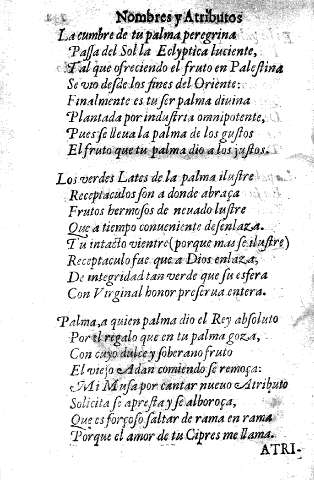 Nombres y Atributos
La cumbre de tu palma peregrina
Passa del Sol la Eclyptica luciente,
Tal que ofreciendo el fruto en Palestina
Se vio desde los fines del Oriente:
Finalmente es tu ser palma diuina
Plantada por industria omnipotente,
Pues se lleua la palma de los gustos
El fruto que tu palma dio a los justos.
Los verdes Lates de la palma ilustre
Receptaculos son a donde abraça
Frutos hermosos de neuado lustre
Que a tiempo conueniente desenlaza.
Tu intacto vientre (porque mas se ilustre)
Receptaculo fue que a Dios enlaza,
De integridad tan verde que su esfera
Con Virginal honor preserua entera.
Palma, a quien palma dio el Rey absoluto
Por el regalo que en tu palma goza,
Con cuyo dulce y soberano fruto
El viejo Adan comiendo se remoça:
Mi Musa por cantar nueuo Atributo
Solicita se apresta y se alboroça,
Que es forçoso saltar de rama en rama
Porque el amor de tu Cipres me llama.
ATRI-